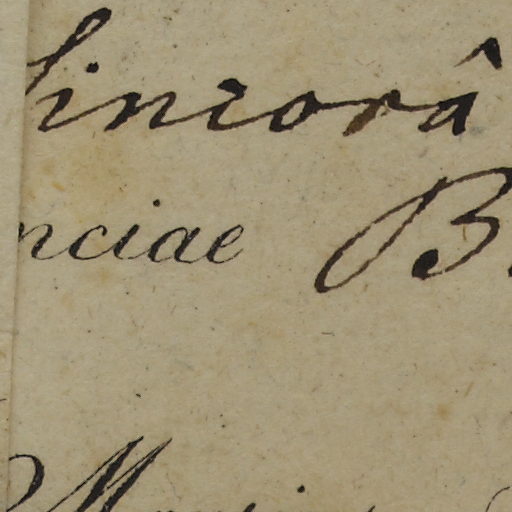 Sincorâ
nciae B